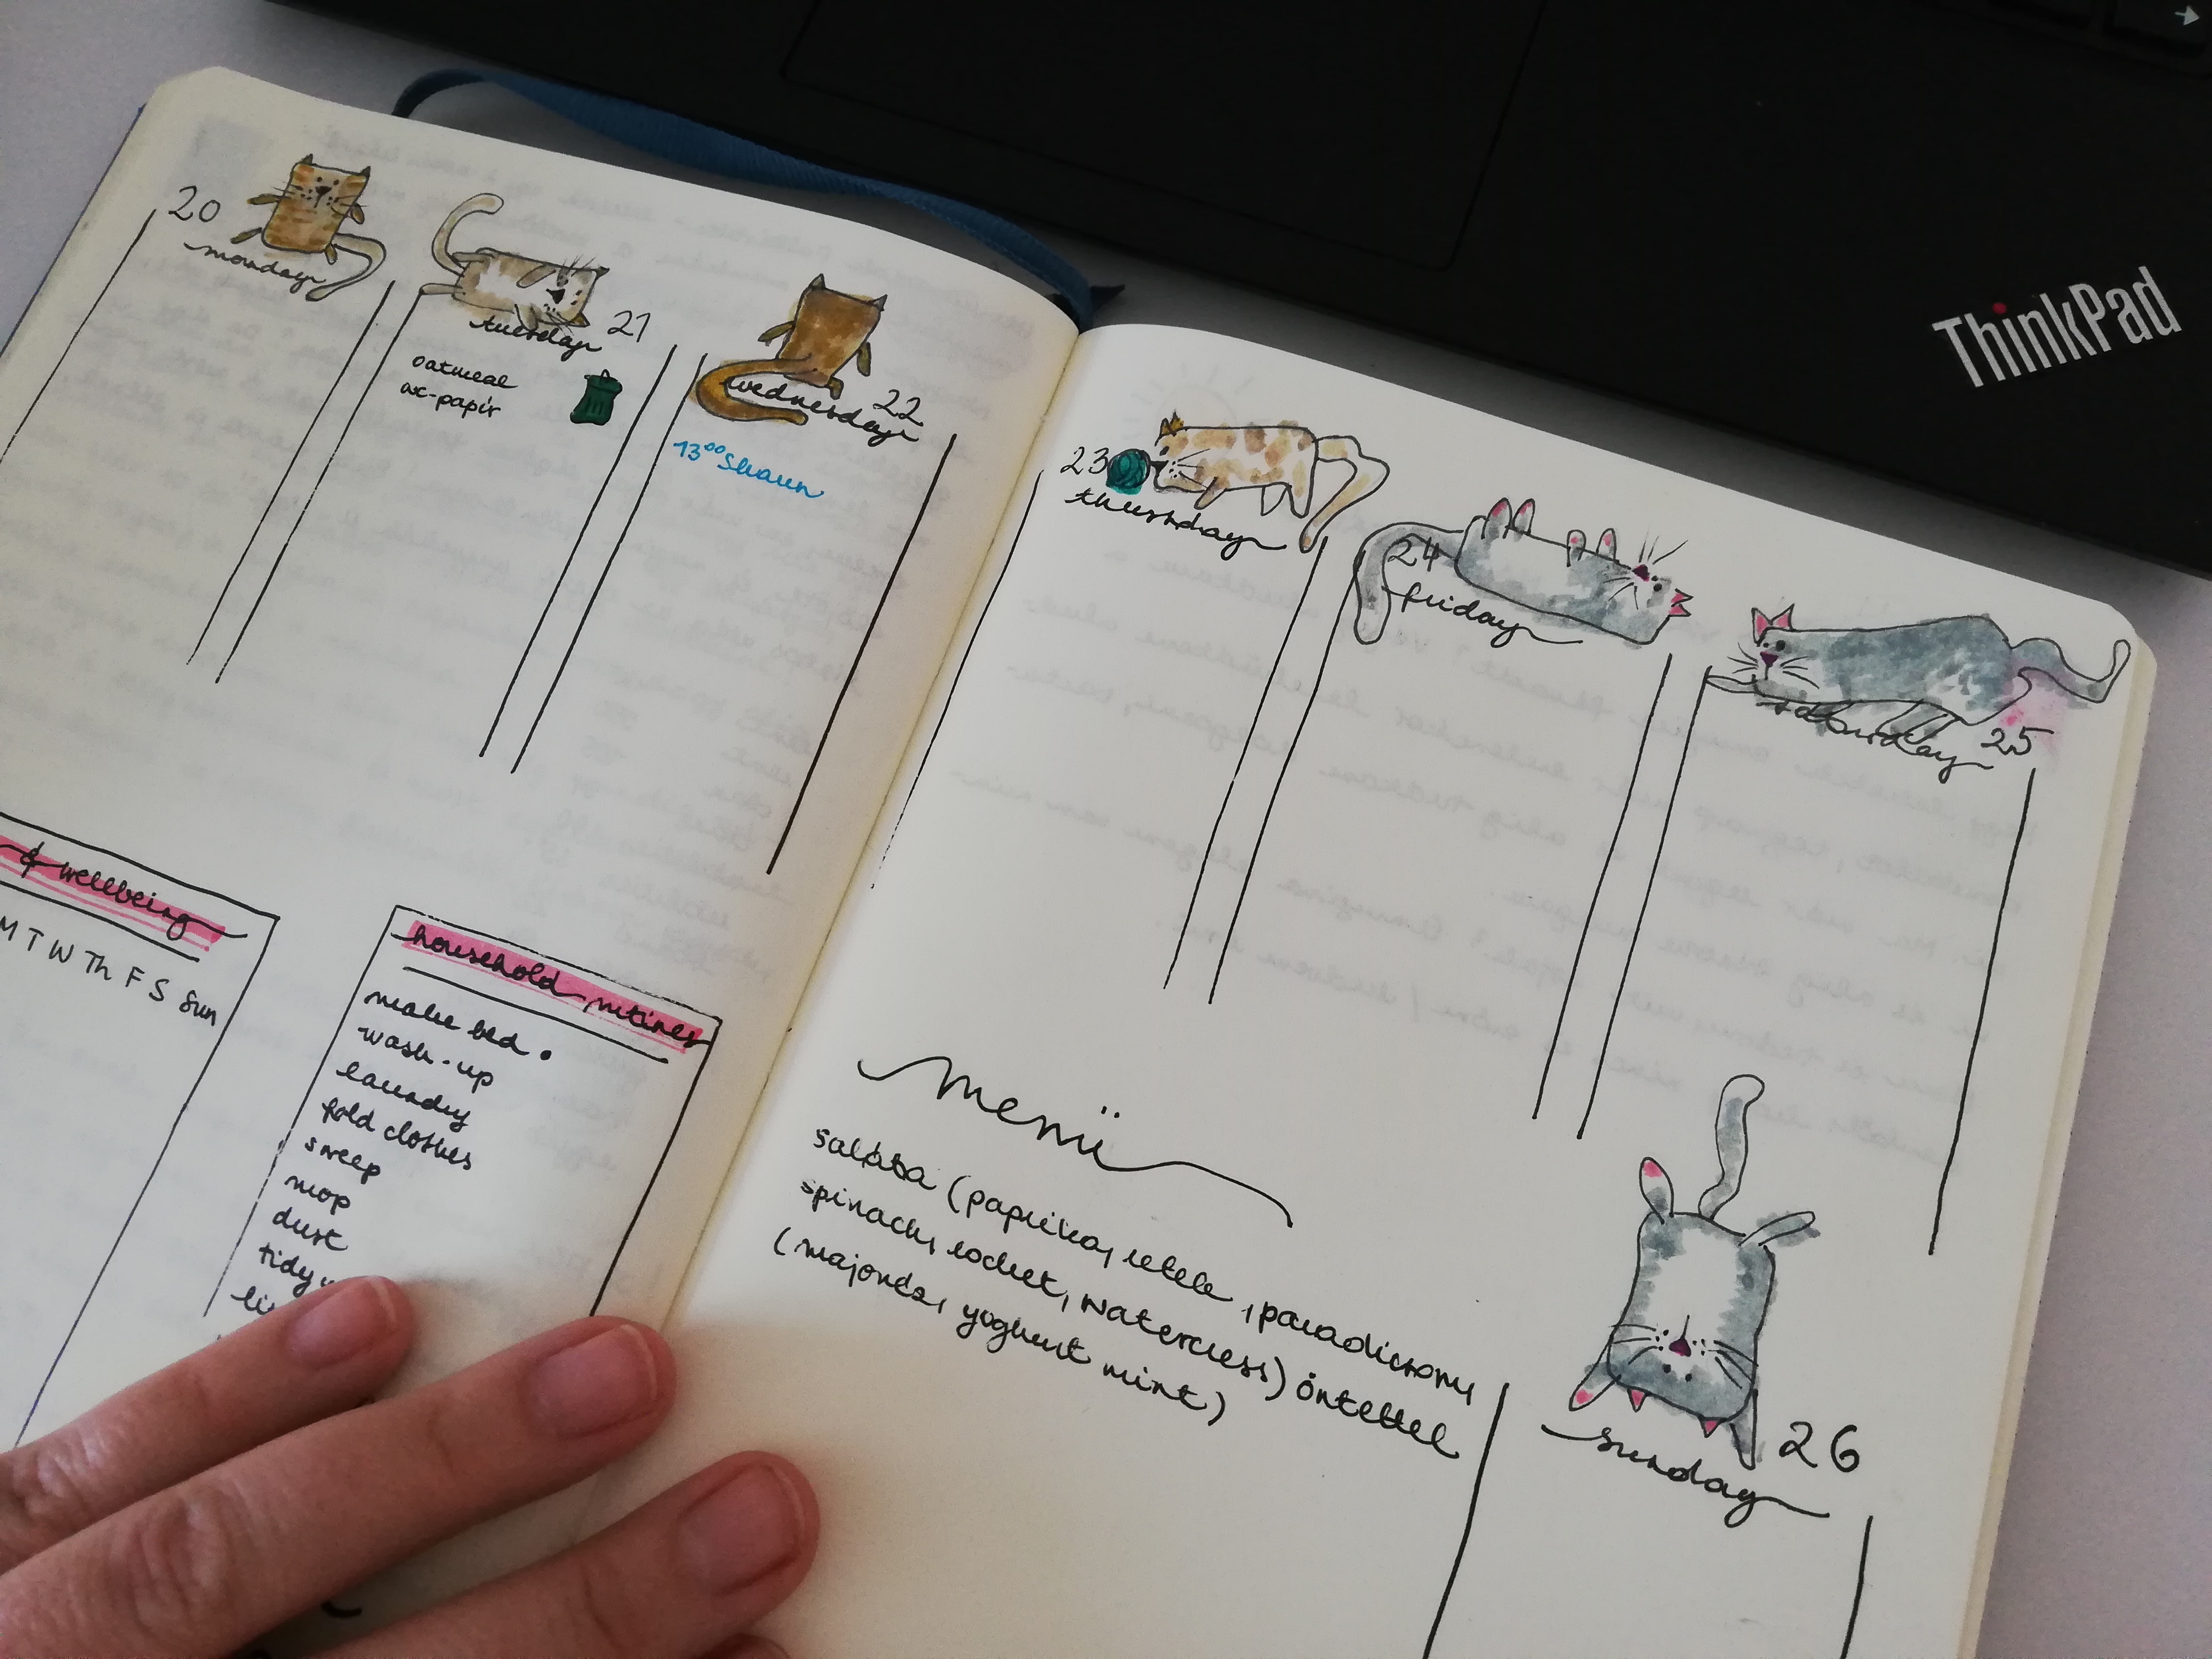 ThinkPad
20
monday
tuesday 21
oatmeal
wc-papír
wednesday 22
13⁰⁰ Shaun
23
thursday
24
friday
saturday 25
& wellbeing
M T W Th F S Sun
household routines
make bed •
wash-up
laundry
fold clothes
sweep
mop
dust
tidy
menü
saláta (paprika, retek, paradicsom,
spinach, rocket, watercress) öntettel
(majonéz, yoghurt mint)
sunday 26